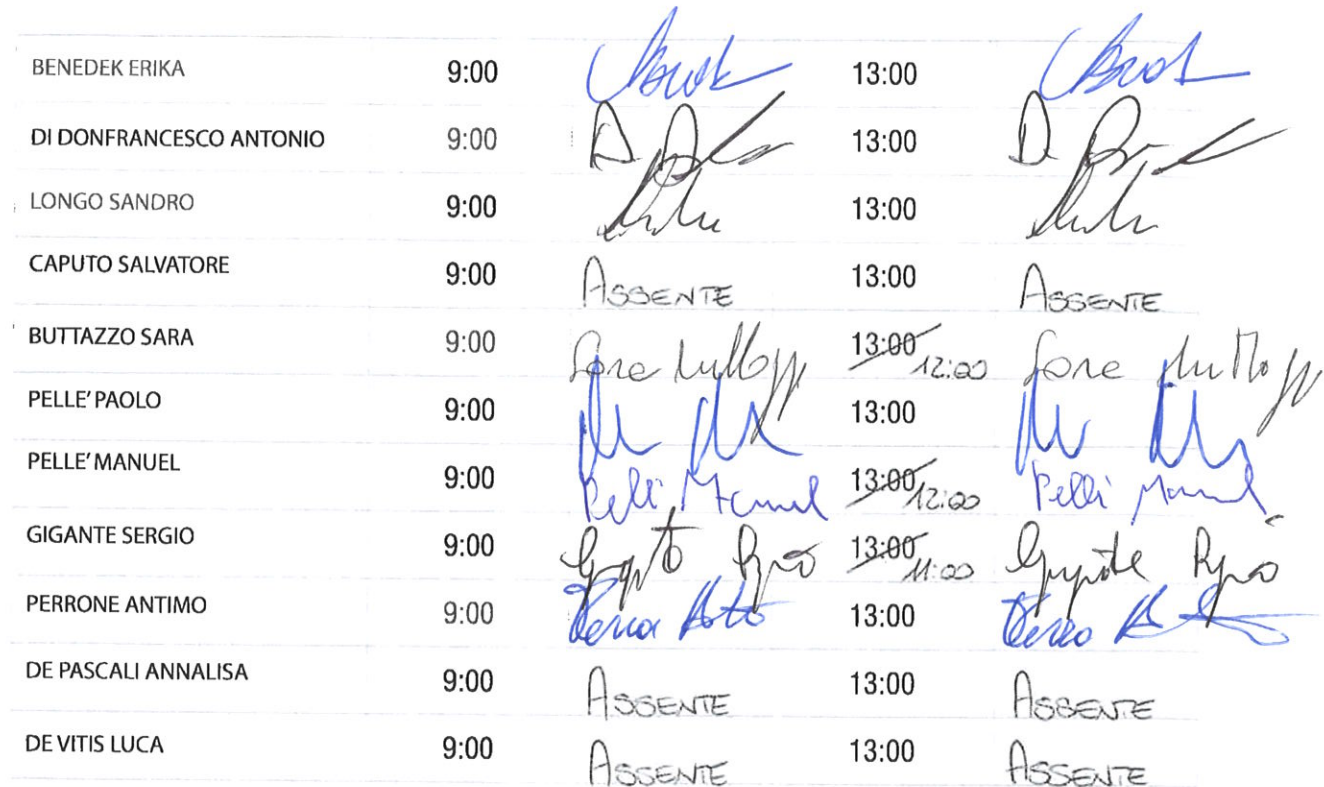 BENEDEK ERIKA 9:00 13:00
DI DONFRANCESCO ANTONIO 9:00 13:00
LONGO SANDRO 9:00 13:00
CAPUTO SALVATORE 9:00 ASSENTE 13:00 ASSENTE
BUTTAZZO SARA 9:00 13:00 12:00
PELLE' PAOLO 9:00 13:00
PELLE' MANUEL 9:00 13:00 12:00
GIGANTE SERGIO 9:00 13:00 11:00
PERRONE ANTIMO 9:00 13:00
DE PASCALI ANNALISA 9:00 ASSENTE 13:00 ASSENTE
DE VITIS LUCA 9:00 ASSENTE 13:00 ASSENTE